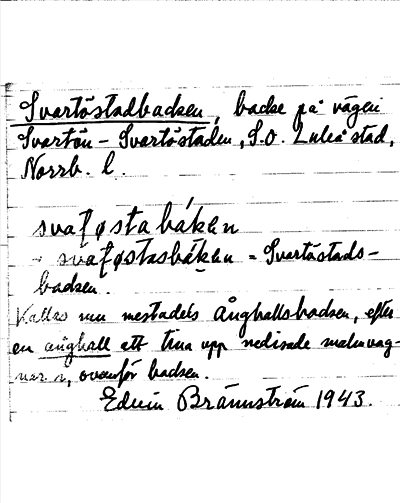 Svartöstadbacken, backe på vägen
Svartön - Svartöstaden, S.O. Luleå stad,
Norrb. l.
svaʃøstabákən
- sváʃøstasbákən = Svartöstads-
backen.
Kallas nu mestadels Ånghallsbacken, efter
en ånghall att tina upp nedisade malmvag-
nar i, ovanför backen.
Edvin Brännström 1943.